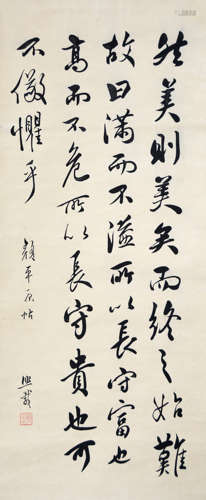 然美則美矣而終之始難
故曰滿而不溢所以長守富也
高而不危所以長守貴也可
不儆懼乎
顏平原帖